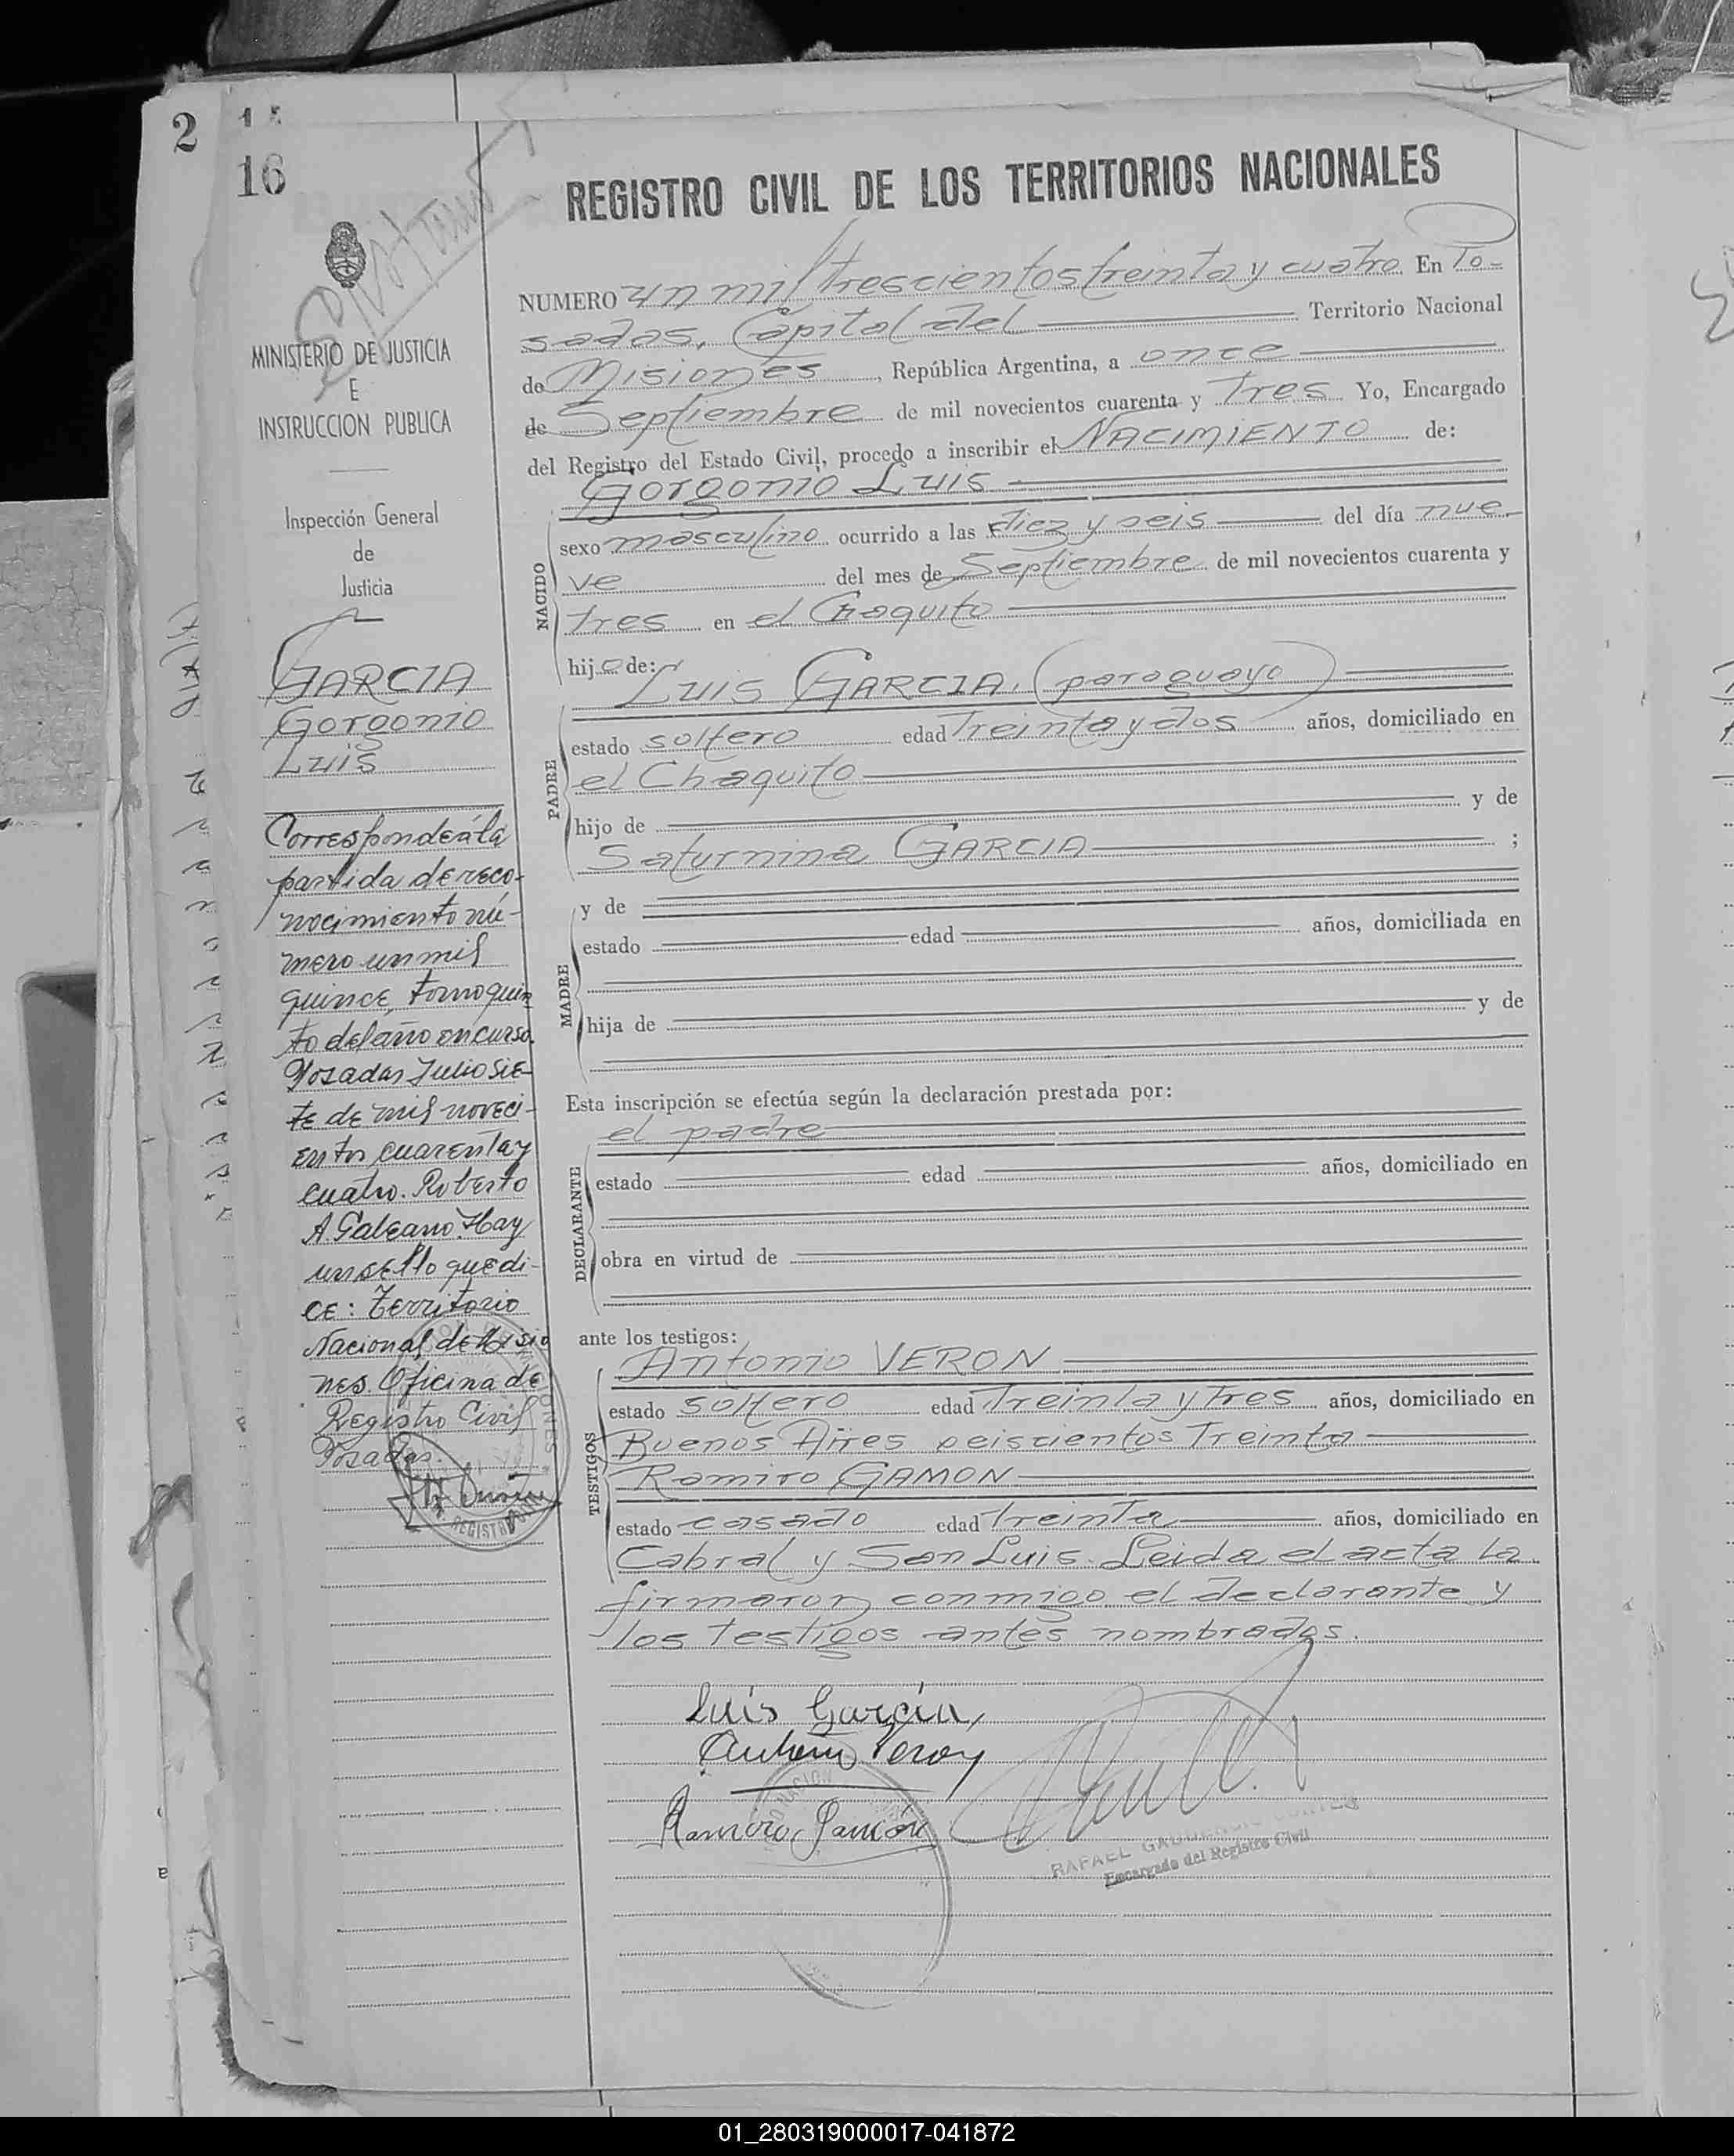 2
16
REGISTRO CIVIL DE LOS TERRITORIOS NACIONALES
MINISTERIO DE JUSTICIA
E
INSTRUCCION PUBLICA
Inspección General
de
Justicia
GARCIA
Gorgonio
Luis
Corresponde a la
partida de reco-
nocimiento nú-
mero un mil
quince, tomo quin
to del año en curso.
Posadas Julio sie-
te de mil noveci-
entos cuarenta y
cuatro. Roberto
A. Galeano. Hay
un sello que di-
ce: Territorio
Nacional de Misio
nes. Oficina de
Registro Civil
Posadas.
NUMERO un mil trescientos treinta y cuatro En Po-
sadas, Capital del Territorio Nacional
de Misiones, República Argentina, a once
de Septiembre de mil novecientos cuarenta y Tres Yo, Encargado
del Registro del Estado Civil, procedo a inscribir el NACIMIENTO de:
Gorgonio Luis
NACIDO
sexo masculino ocurrido a las diez y seis del día nue-
ve del mes de Septiembre de mil novecientos cuarenta y
tres en el Chaquito
hijo de:
Luis GARCIA, (paraguayo)
PADRE
estado soltero edad Treinta y dos años, domiciliado en
el Chaquito
hijo de y de
Saturnina GARCIA ;
y de
MADRE
estado edad años, domiciliada en
hija de y de
Esta inscripción se efectúa según la declaración prestada por:
el padre
DECLARANTE
estado edad años, domiciliado en
obra en virtud de
ante los testigos:
Antonio VERON
TESTIGOS
estado soltero edad Treinta y Tres años, domiciliado en
Buenos Aires seiscientos Treinta
Ramiro GAMON
estado casado edad Treinta años, domiciliado en
Cabral y San Luis. Leida el acta la
firmaron conmigo el declarante y
los Testigos antes nombrados.
Luis García,
Antonio Veron
Ramiro Gamón
RAFAEL
Encargado del Registro Civil
01_280319000017-041872